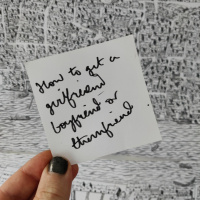 How to get a
girlfriend
boyfriend or
thempfriend